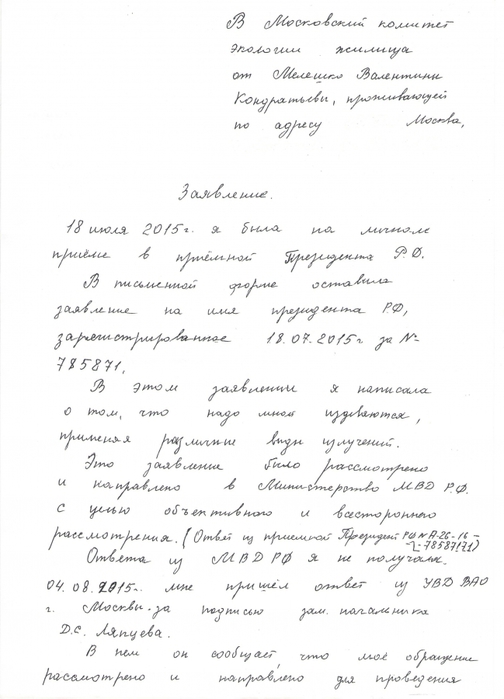 В Московский комитет
экологии жилища
от Мелешко Валентины
Кондратьевы, проживающей
по адресу Москва,
Заявление.
18 июля 2015г. я была на личном
приёме в приёмной Президента Р.Ф.
В письменной форме оставила
заявление на имя президента РФ,
зарегистрированное 18.07.2015г за №
785871.
В этом заявлении я написала
о том, что надо мной издеваются,
применяя различные виды излучений.
Это заявление было рассмотрено
и направлено в Министерство МВД Р.Ф.
с целью объективного и всестороннего
рассмотрения. (Ответ из приемной Президент РФ № А-26-16-
78587171)
Ответа из МВД РФ я не получала.
04.08.2015г. мне пришёл ответ из УВД ВАО
г. Москвы за подписью зам. начальника
Д.С. Ляпцева.
В нем он сообщает, что моё обращение
рассмотрено и направлено для проведения